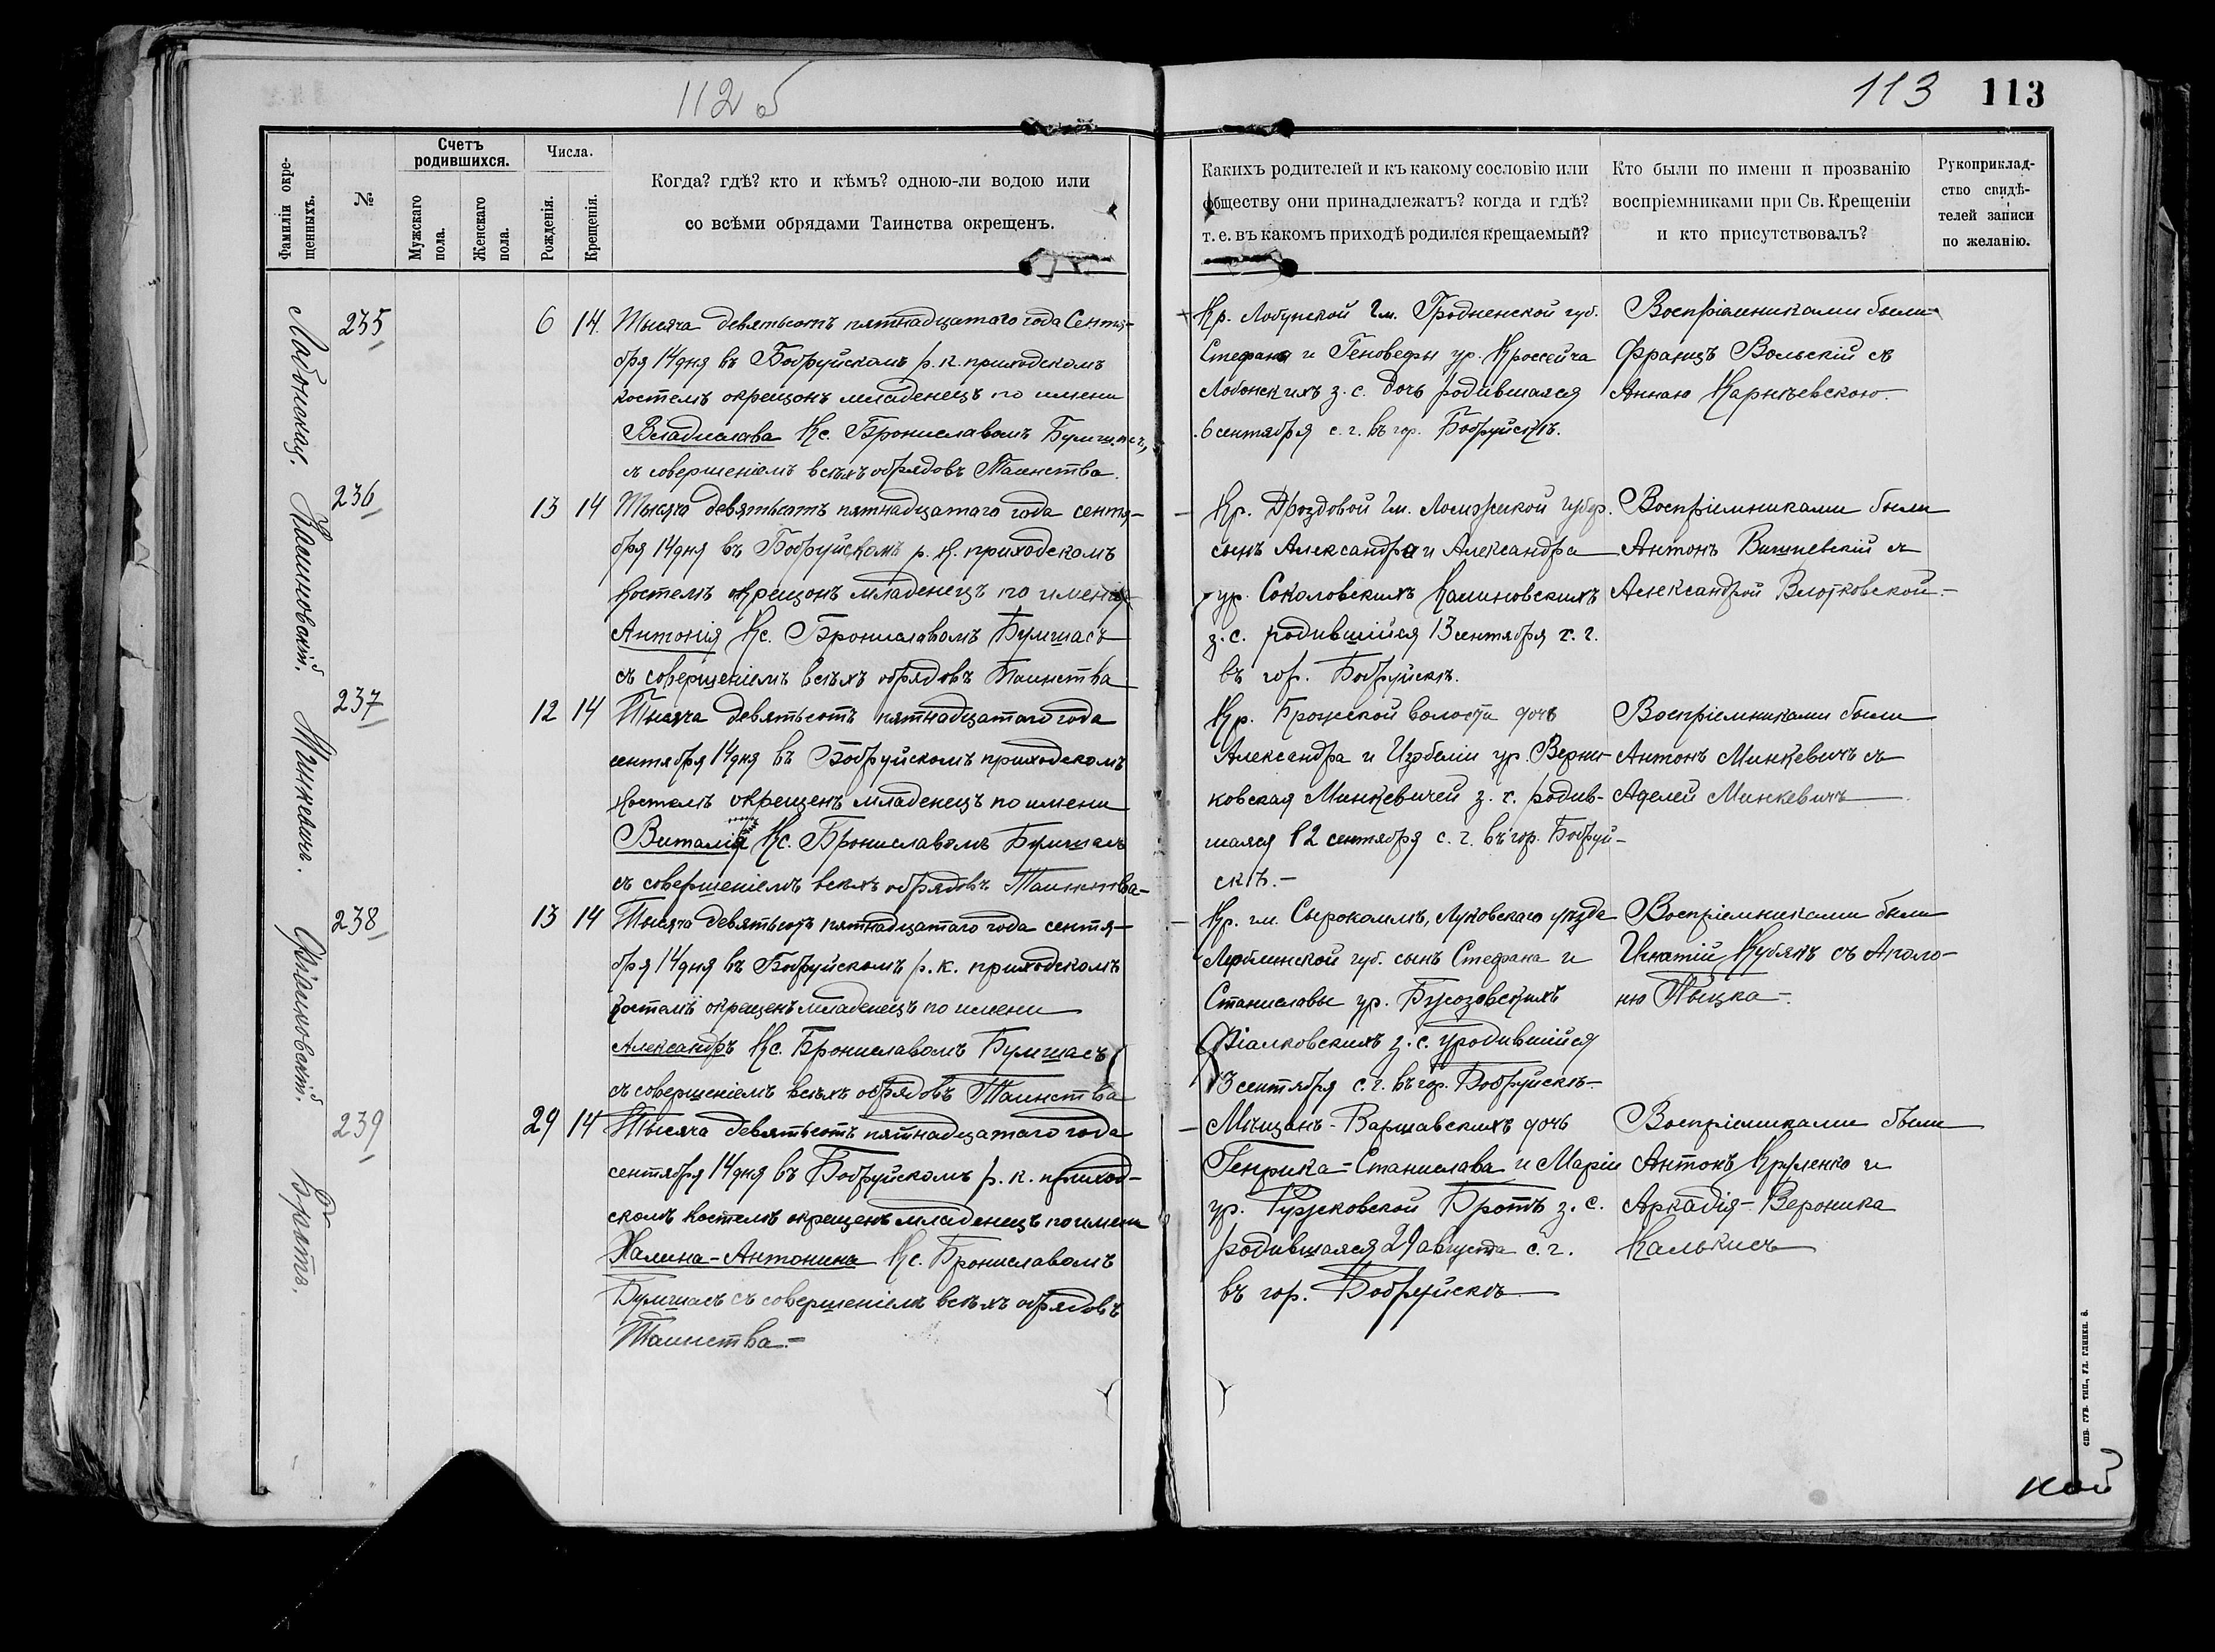 112 б
113
113
Фамиліи окре-
щенныхъ.
№
Счетъ
родившихся.
Мужскаго
пола.
Женскаго
пола.
Числа.
Рожденія.
Крещенія.
Когда? гдѣ? кто и кѣмъ? одною-ли водою или
со всѣми обрядами Таинства окрещенъ.
Какихъ родителей и къ какому сословію или
обществу они принадлежатъ? когда и гдѣ?
т. е. въ какомъ приходѣ родился крещаемый?
Кто были по имени и прозванію
воспріемниками при Св. Крещеніи
и кто присутствовалъ?
Рукоприклад-
ство свидѣ-
телей записи
по желанію.
Лабонская.
235
6 14.
Тысяча девятьсотъ пятнадцатаго года Сентя-
бря 14 дня въ Бобруйскомъ р. к. приходскомъ
костелѣ окрещонъ младенецъ по имени
Владислава Кс. Брониславомъ Бумшасъ,
съ совершеніемъ всѣхъ обрядовъ Таинства.
Кр. гм. Гродненской губ.
Стефана и Геновефы ур.
Лобонскихъ з. с. дочь родившаяся
6 сентября с. г. въ гор. Бобруйскѣ.
Воспріемниками были
Францъ Вольскій съ
Анною
Калиновскій.
236
13 14
Тысяча девятьсотъ пятнадцатаго года сентя-
бря 14 дня въ Бобруйскомъ р. к. приходскомъ
костелѣ окрещонъ младенецъ по имени
Антонія Кс. Брониславомъ Бумшасъ
съ совершеніемъ всѣхъ обрядовъ Таинства
Кр. Дроздовой гм. Ломжской губер.
сынъ Александра и Александра
ур. Соколовскихъ Калиновскихъ
з. с. родившійся 13 сентября с. г.
въ гор. Бобруйскѣ.
Воспріемниками были
Антонъ Вишневскій съ
Александрой
Минкевичъ.
237
12 14
Тысяча девятьсотъ пятнадцатаго года
сентября 14 дня въ Бобруйскомъ приходскомъ
костелѣ окрещенъ младенецъ по имени
Виталія Кс. Брониславомъ Бумшасъ
съ совершеніемъ всѣхъ обрядовъ Таинства-
Кр. Брожской волости дочь
Александра и Изобеліи ур. Верни-
ковская Минкевичей з. с. родив-
шаяся 12 сентября с. г. въ гор. Бобруй-
скѣ.-
Воспріемниками были
Антонъ Минкевичъ съ
Аделей Минкевичъ
Фіалковскій.
238
13 14
Тысяча девятьсотъ пятнадцатаго года сентя-
бря 14 дня въ Бобруйскомъ р. к. приходскомъ
костелѣ окрещенъ младенецъ по имени
Александръ Кс. Брониславомъ Бумшасъ
съ совершеніемъ всѣхъ обрядовъ Таинства
Кр. гм. Сырокомль, Луковскаго уѣзда
Люблинской губ. сынъ Стефана и
Станиславы ур.
Фіалковскихъ з. с. родившійся
13 сентября с. г. въ гор. Бобруйскѣ-
Воспріемниками были
Игнатій Кубякъ съ Аполо-
нію
Бротъ.
239
29 14
Тысяча девятьсотъ пятнадцатаго года
сентября 14 дня въ Бобруйскомъ р. к. приход-
скомъ костелѣ окрещенъ младенецъ по имени
Халина-Антонина Кс. Брониславомъ
Бумшасъ съ совершеніемъ всѣхъ обрядовъ
Таинства.-
Мѣщанъ-Варшавскихъ дочь
Генрика-Станислава и Маріи
ур. Бротъ з. с.
родившаяся 29 августа с. г.
въ гор. Бобруйскѣ
Воспріемниками были
Антонъ Круленко и
Аркадія-Вероника
Калькисъ
спб. губ. тип., ул. глинки. 8.